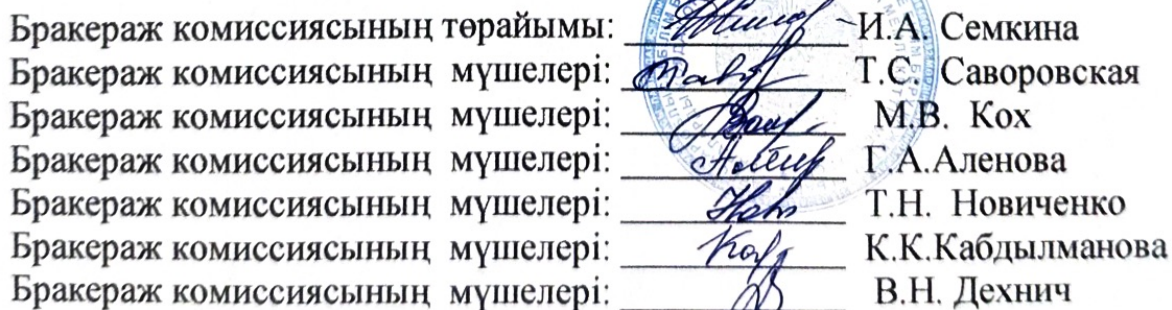 Бракераж комиссиясының төрайымы: И.А. Семкина
Бракераж комиссиясының мүшелері: Т.С. Саворовская
Бракераж комиссиясының мүшелері: М.В. Кох
Бракераж комиссиясының мүшелері: Г.А.Аленова
Бракераж комиссиясының мүшелері: Т.Н. Новиченко
Бракераж комиссиясының мүшелері: К.К.Кабдылманова
Бракераж комиссиясының мүшелері: В.Н. Дехнич